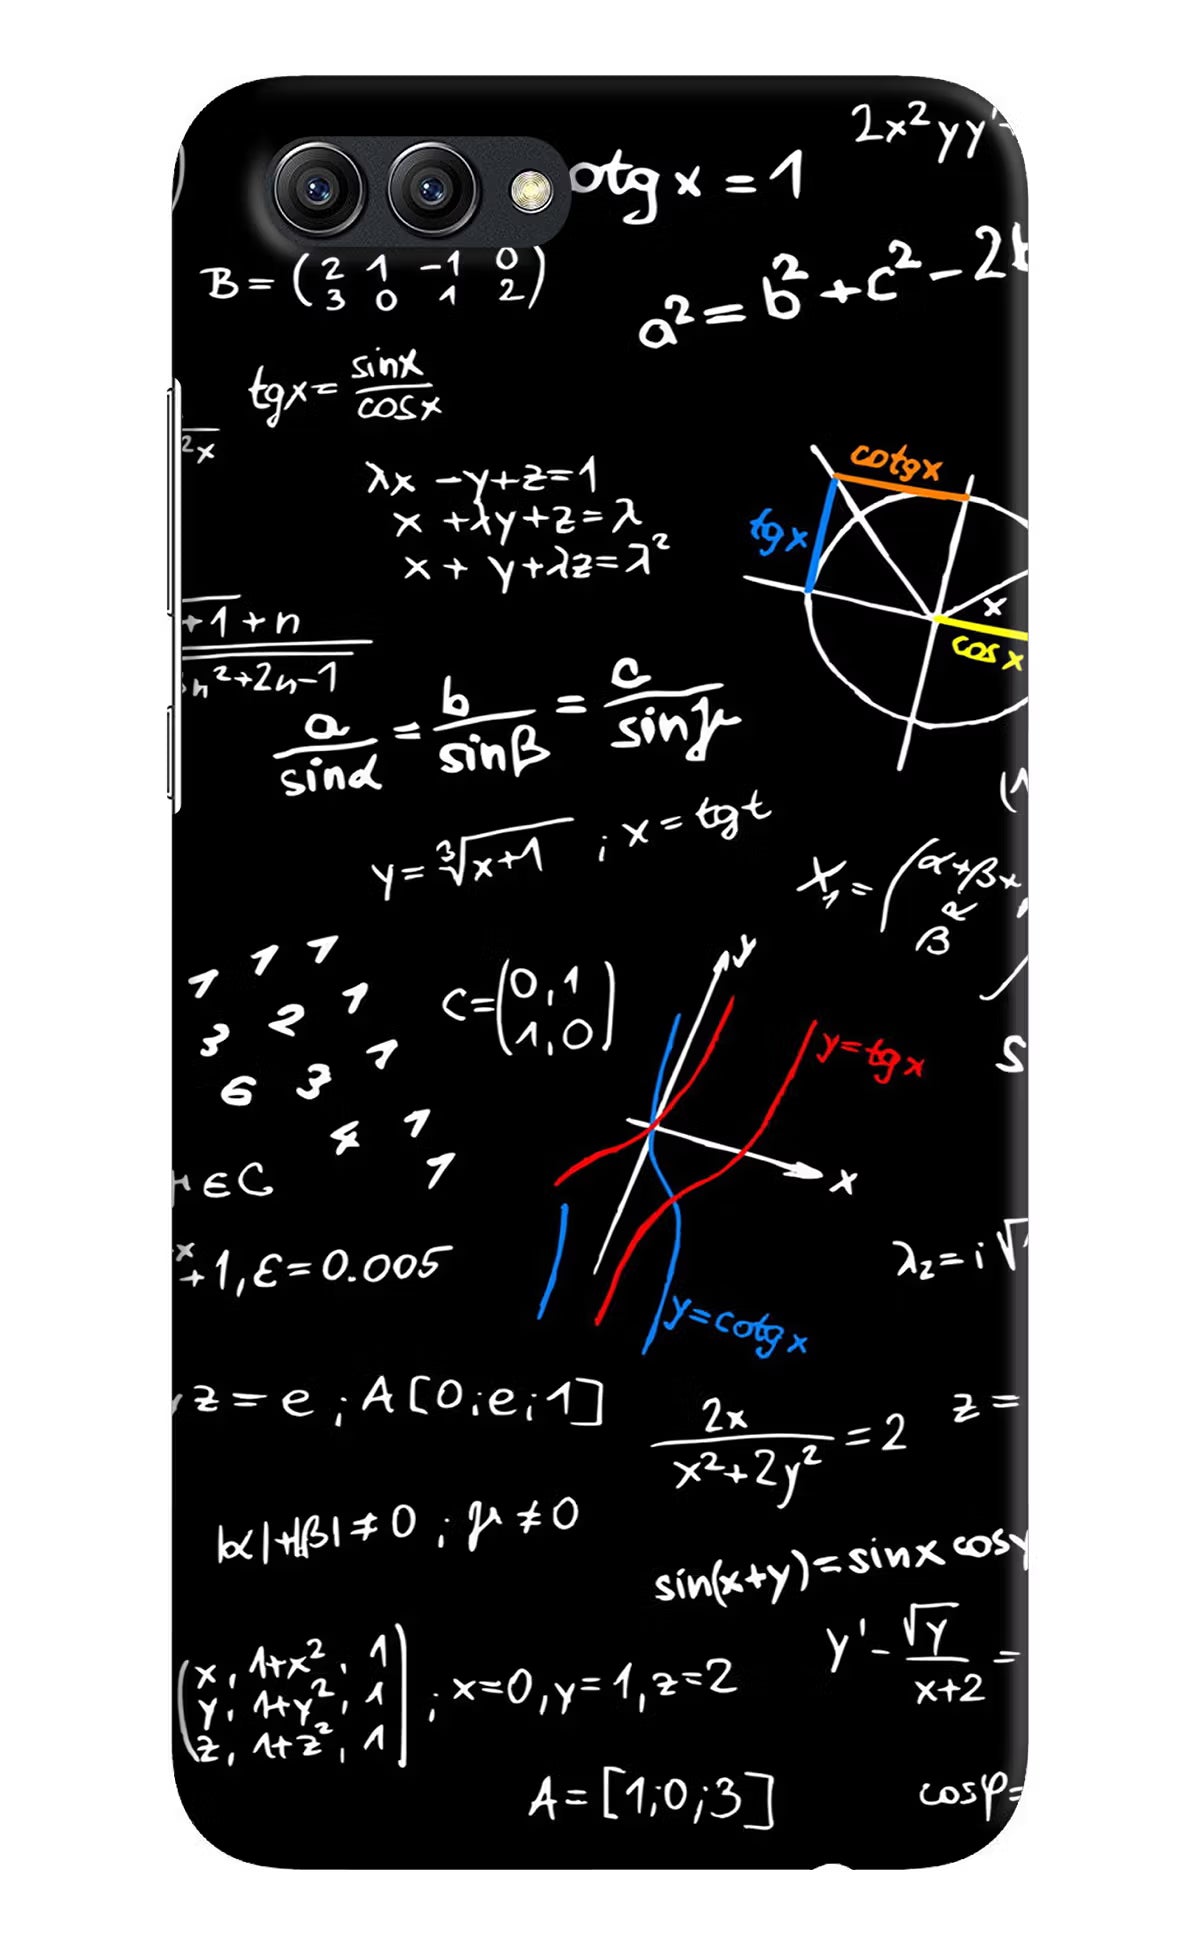 2x²yy'
otg x = 1
B = (2 1 -1 0
3 0 1 2)
a² = b² + c² - 2
tgx = sinx / cosx
2x
λx - y + z = 1
x + λy + z = λ
x + y + λz = λ²
cotgx
tgx
x
cosx
+1 + n
n² + 2n - 1
a / sinα = b / sinβ = c / sinγ
y = ³√x+1 ; x = tgt
X₁ = (α+β+
β R
1 1 1
3 2 1
6 3 1
4 1
1
C = (0,1
1,0)
y
y=tgx
x
y=cotgx
S
∈C
x
+1, ε = 0.005
λ₂ = i√
z = e ; A[0;e;1]
2x / x²+2y² = 2
z =
|α|+|β| ≠ 0 ; μ ≠ 0
sin(x+y) = sinx cosy
y' - √y / x+2 =
(x, 1+x², 1
y, 1+y², 1
z, 1+z², 1) ; x=0, y=1, z=2
A = [1;0;3]
cosφ=